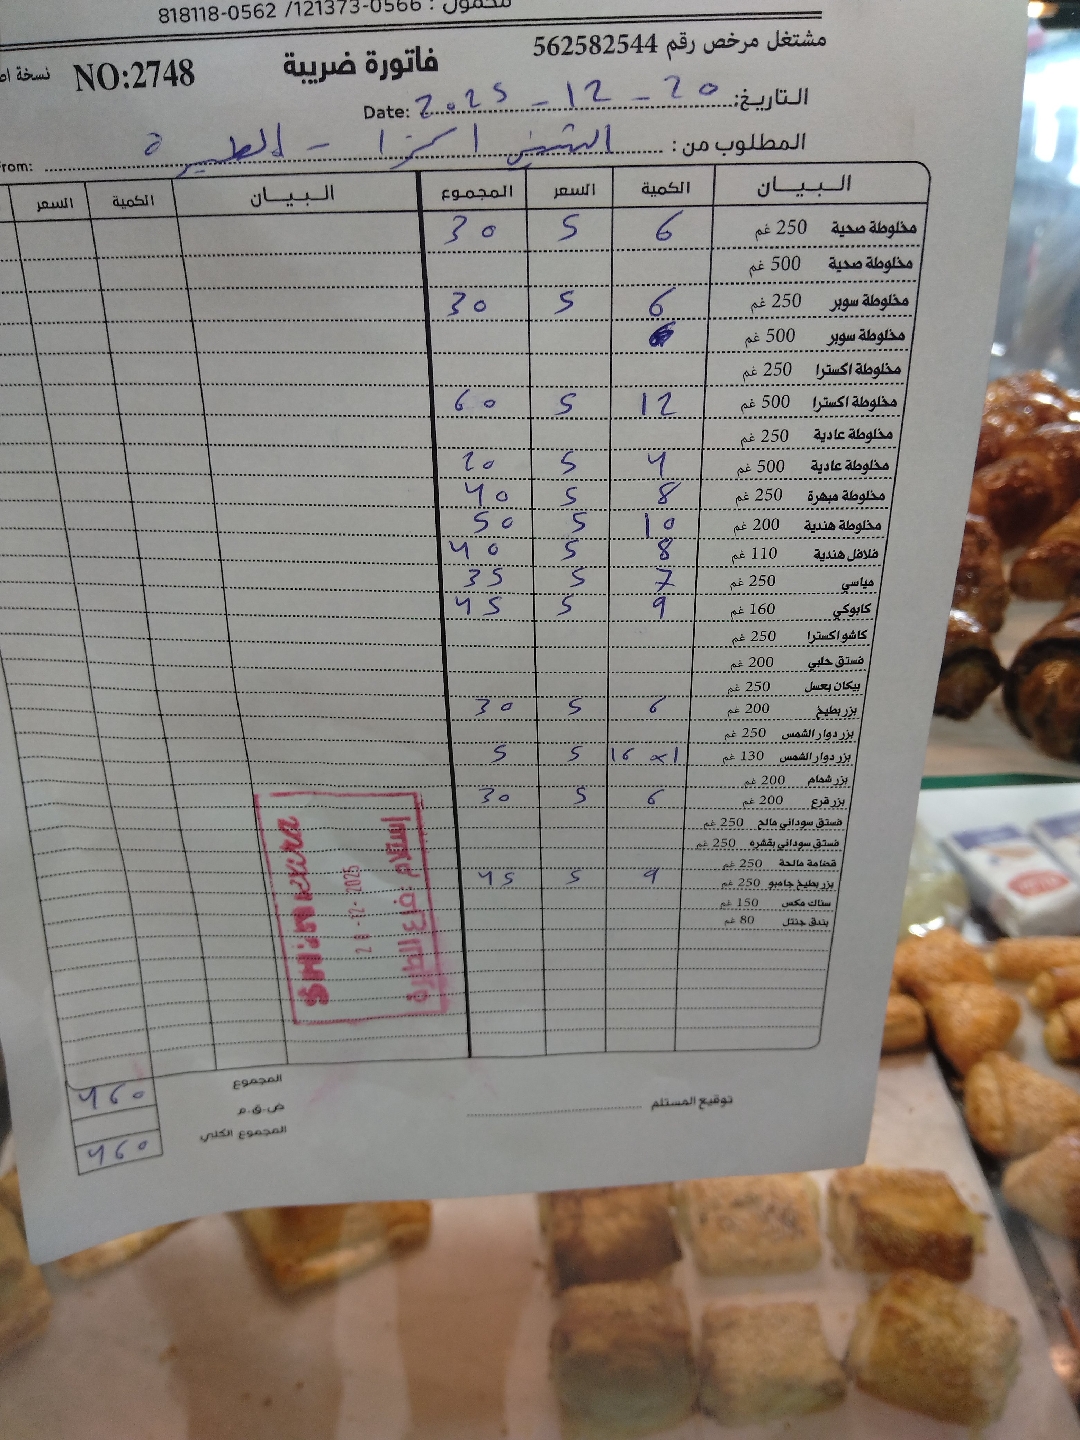 محمول : 0562-818118 /0566-121373
مشتغل مرخص رقم 562582544
فاتورة ضريبة
NO:2748
نسخة
التاريخ: 2025 - 12 - 20 Date:
المطلوب من : الشني اكسترا - الطيرة From:
البيان الكمية السعر المجموع البيان الكمية السعر
مخلوطة صحية 250 غم 6 5 30
مخلوطة صحية 500 غم
مخلوطة سوبر 250 غم 6 5 30
مخلوطة سوبر 500 غم
مخلوطة اكسترا 250 غم
مخلوطة اكسترا 500 غم 12 5 60
مخلوطة عادية 250 غم
مخلوطة عادية 500 غم 4 5 20
مخلوطة مبهرة 250 غم 8 5 40
مخلوطة هندية 200 غم 10 5 50
فلافل هندية 110 غم 8 5 40
مياسي 250 غم 7 5 35
كابوكي 160 غم 9 5 45
كاشو اكسترا 250 غم
فستق حلبي 200 غم
بيكان بعسل 250 غم
بزر بطيخ 200 غم 6 5 30
بزر دوار الشمس 250 غم
بزر دوار الشمس 130 غم 16 x1 5 5
بزر شمام 200 غم
بزر قرع 200 غم 6 5 30
فستق سوداني مالح 250 غم
فستق سوداني بقشره 250 غم
قضامة مالحة 250 غم
بزر بطيخ جامبو 250 غم 9 5 45
سناك مكس 150 غم
بندق جنتل 80 غم
استلام
28 -12- 2025
المجموع 460
ض.ق.م
المجموع الكلي 460
توقيع المستلم